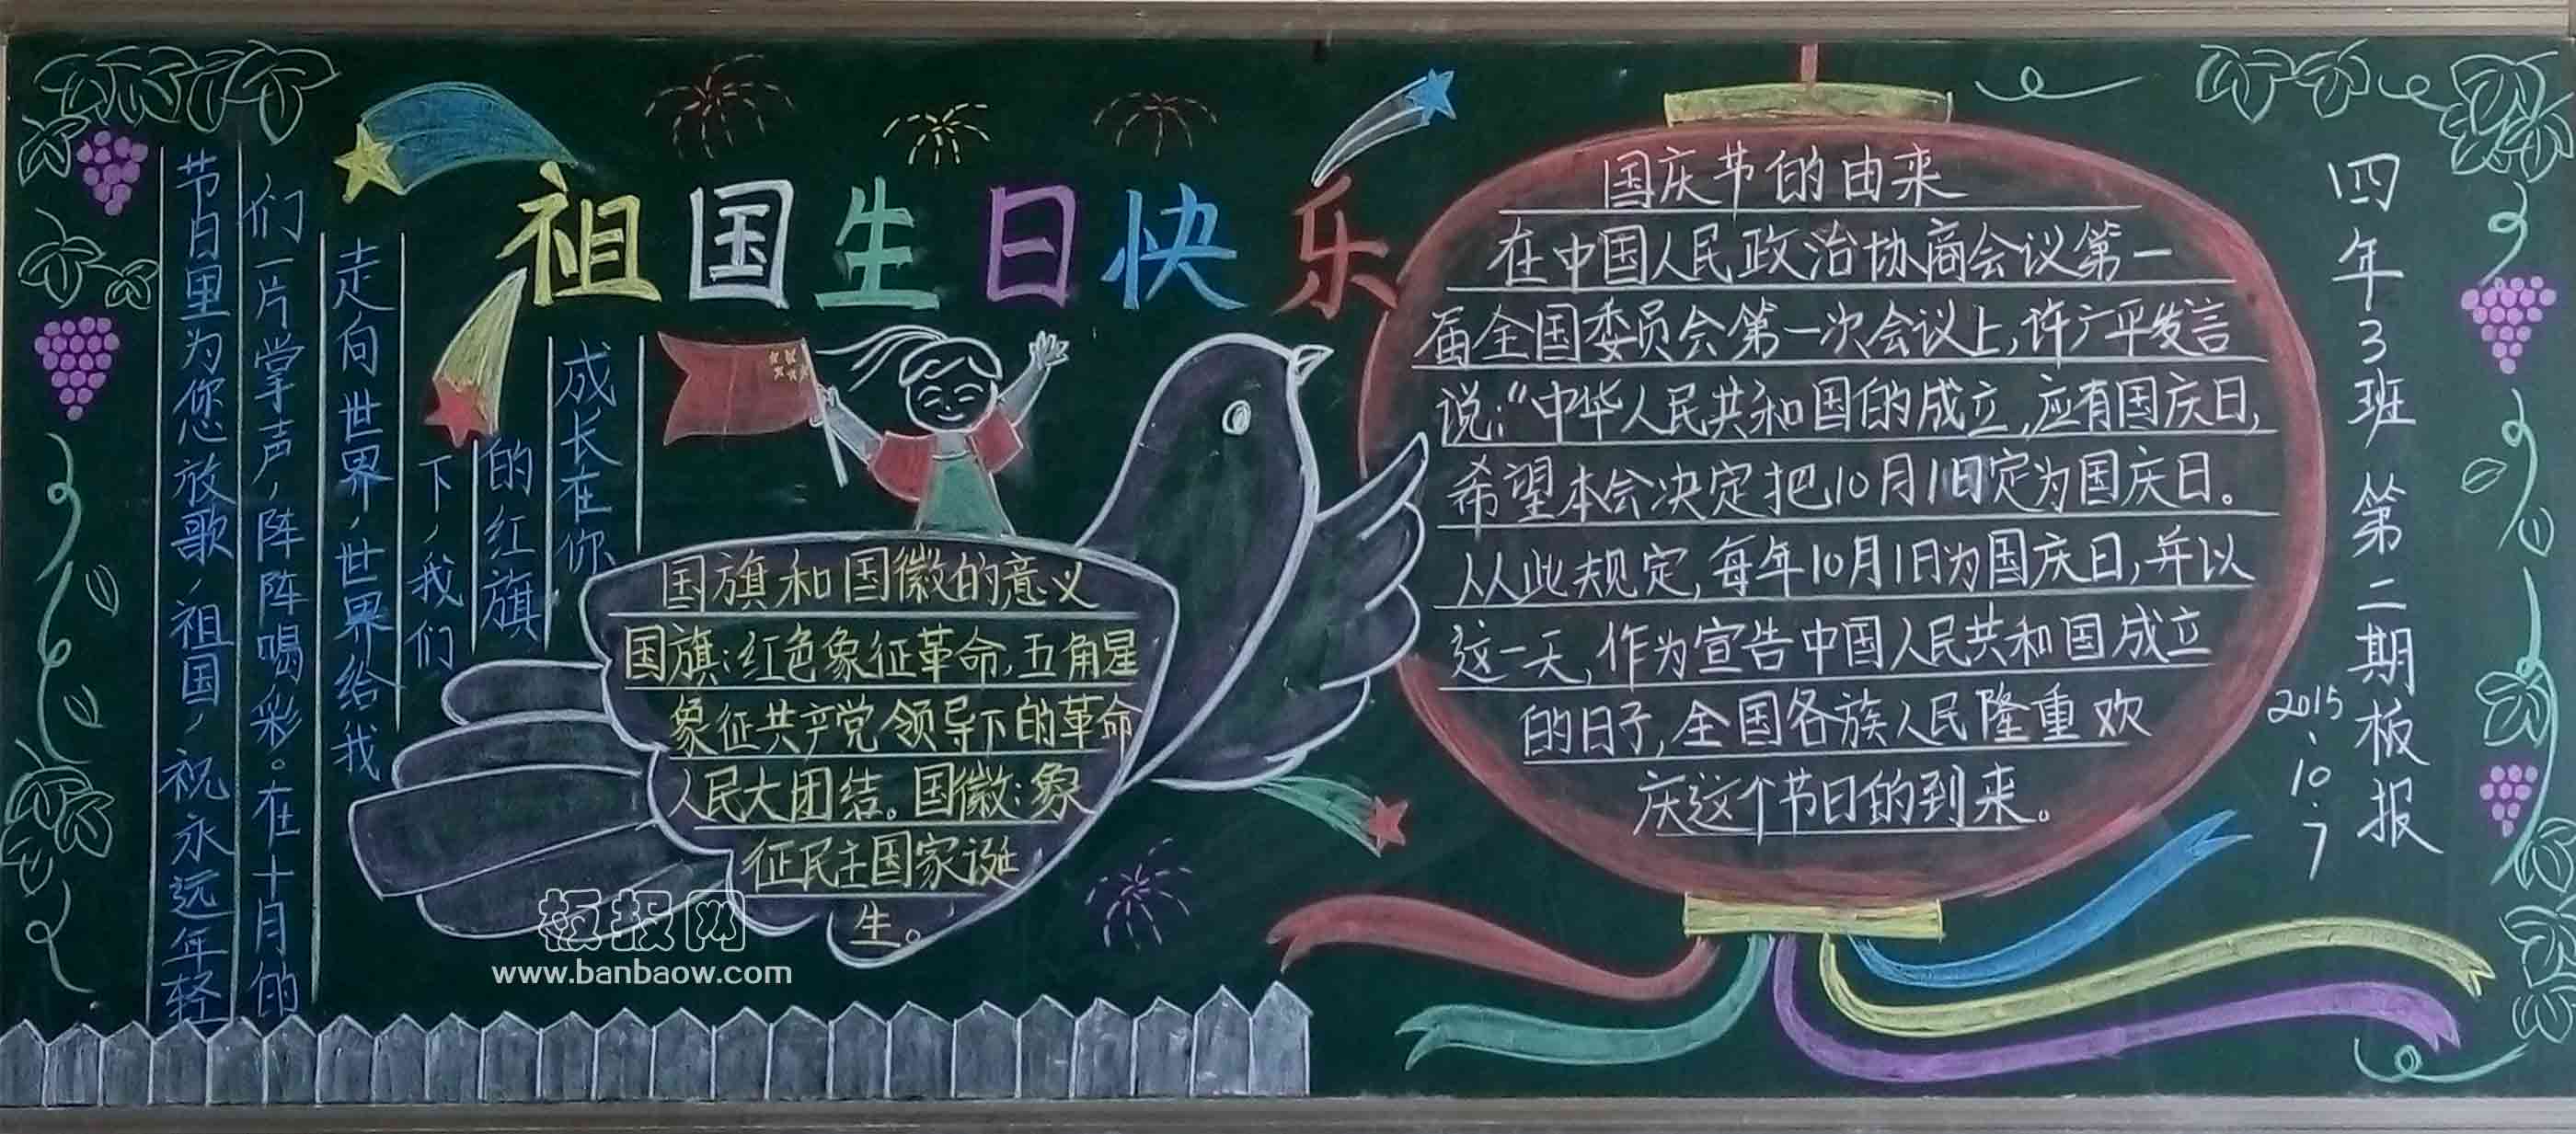 祖国生日快乐
成长在你
的红旗
下,我们
走向世界,世界给我
们一片掌声,阵阵喝彩。在十月的
节日里为您放歌,祖国,祝永远年轻
国旗和国徽的意义
国旗:红色象征革命,五角星
象征共产党领导下的革命
人民大团结。国徽:象
征民主国家诞
生。
国庆节的由来
在中国人民政治协商会议第一
届全国委员会第一次会议上,许广平发言
说:“中华人民共和国的成立,应有国庆日,
希望本会决定把10月1日定为国庆日。
从此规定,每年10月1日为国庆日,并以
这一天,作为宣告中国人民共和国成立
的日子,全国各族人民隆重欢
庆这个节日的到来。
四年3班第二期板报
2015.10.7
板报网
www.banbaow.com